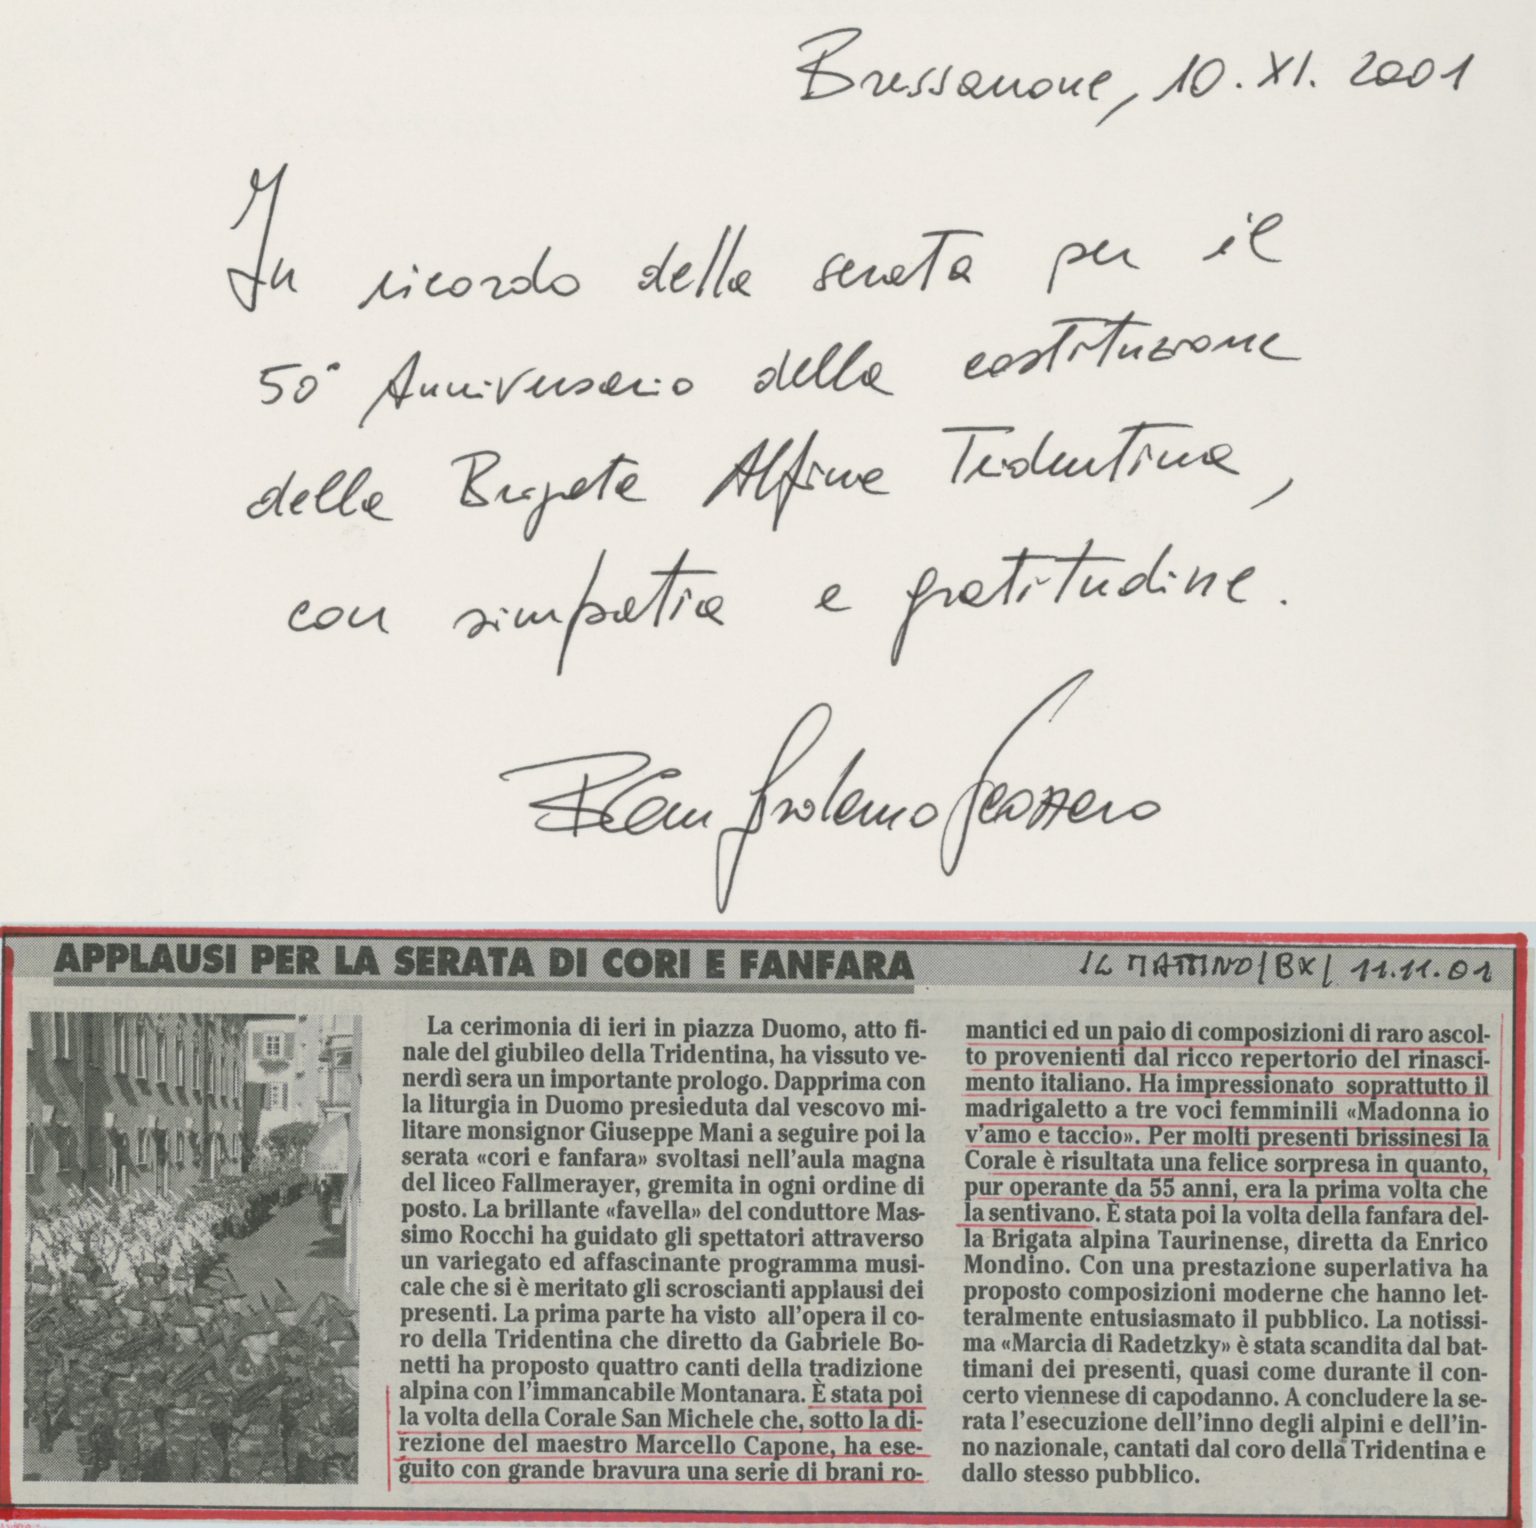 Bressanone, 10.XI.2001
In ricordo della serata per il
50° Anniversario della costituzione
della Brigata Alpina Tridentina,
con simpatia e gratitudine.
Gen Girolamo Scozzaro
APPLAUSI PER LA SERATA DI CORI E FANFARA
IL MATTINO/BX/ 11.11.01
La cerimonia di ieri in piazza Duomo, atto fi-
nale del giubileo della Tridentina, ha vissuto ve-
nerdì sera un importante prologo. Dapprima con
la liturgia in Duomo presieduta dal vescovo mi-
litare monsignor Giuseppe Mani a seguire poi la
serata «cori e fanfara» svoltasi nell'aula magna
del liceo Fallmerayer, gremita in ogni ordine di
posto. La brillante «favella» del conduttore Mas-
simo Rocchi ha guidato gli spettatori attraverso
un variegato ed affascinante programma musi-
cale che si è meritato gli scroscianti applausi dei
presenti. La prima parte ha visto all'opera il co-
ro della Tridentina che diretto da Gabriele Bo-
netti ha proposto quattro canti della tradizione
alpina con l'immancabile Montanara. È stata poi
la volta della Corale San Michele che, sotto la di-
rezione del maestro Marcello Capone, ha ese-
guito con grande bravura una serie di brani ro-
mantici ed un paio di composizioni di raro ascol-
to provenienti dal ricco repertorio del rinasci-
mento italiano. Ha impressionato soprattutto il
madrigaletto a tre voci femminili «Madonna io
v'amo e taccio». Per molti presenti brissinesi la
Corale è risultata una felice sorpresa in quanto,
pur operante da 55 anni, era la prima volta che
la sentivano. È stata poi la volta della fanfara del-
la Brigata alpina Taurinense, diretta da Enrico
Mondino. Con una prestazione superlativa ha
proposto composizioni moderne che hanno let-
teralmente entusiasmato il pubblico. La notissi-
ma «Marcia di Radetzky» è stata scandita dal bat-
timani dei presenti, quasi come durante il con-
certo viennese di capodanno. A concludere la se-
rata l'esecuzione dell'inno degli alpini e dell'in-
no nazionale, cantati dal coro della Tridentina e
dallo stesso pubblico.